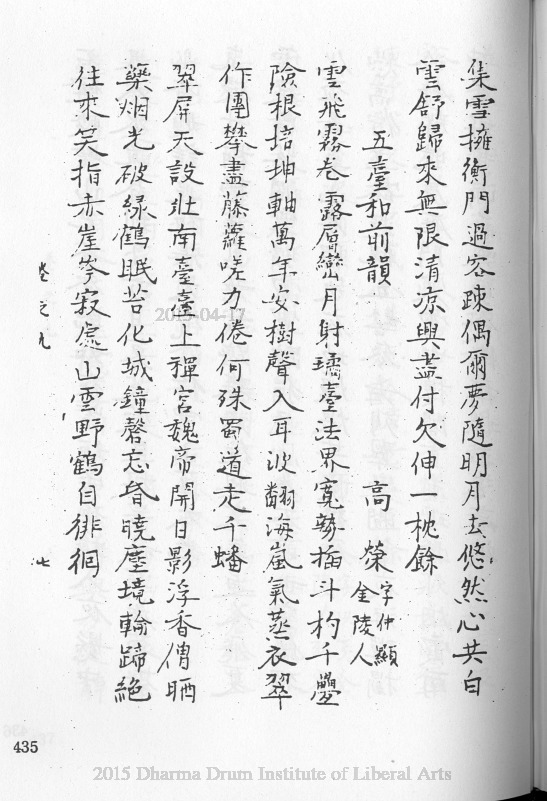 集雪擁衡門過客疎偶爾夢隨明月去悠然心共白
雲舒歸來無限清凉興盡付欠伸一枕餘
五臺和前韻 高 榮字仲顯金陵人
雲飛霧卷露層巒月射璚臺法界寬勢插斗杓千疊
險根培坤軸萬年安樹聲入耳波翻海嵐氣蒸衣翠
作團攀盡藤蘿嗟力倦何殊蜀道走千蟠
翠屏天設壯南臺臺上禪宮魏帝開日影浮香僧晒
藥烟光破綠鶴眠苔化城鐘磬忘昏曉塵境輪蹄絕
往來笑指赤崖岑寂處山雲野鶴自徘徊
卷之九 七
2015-04-17
435
2015 Dharma Drum Institute of Liberal Arts